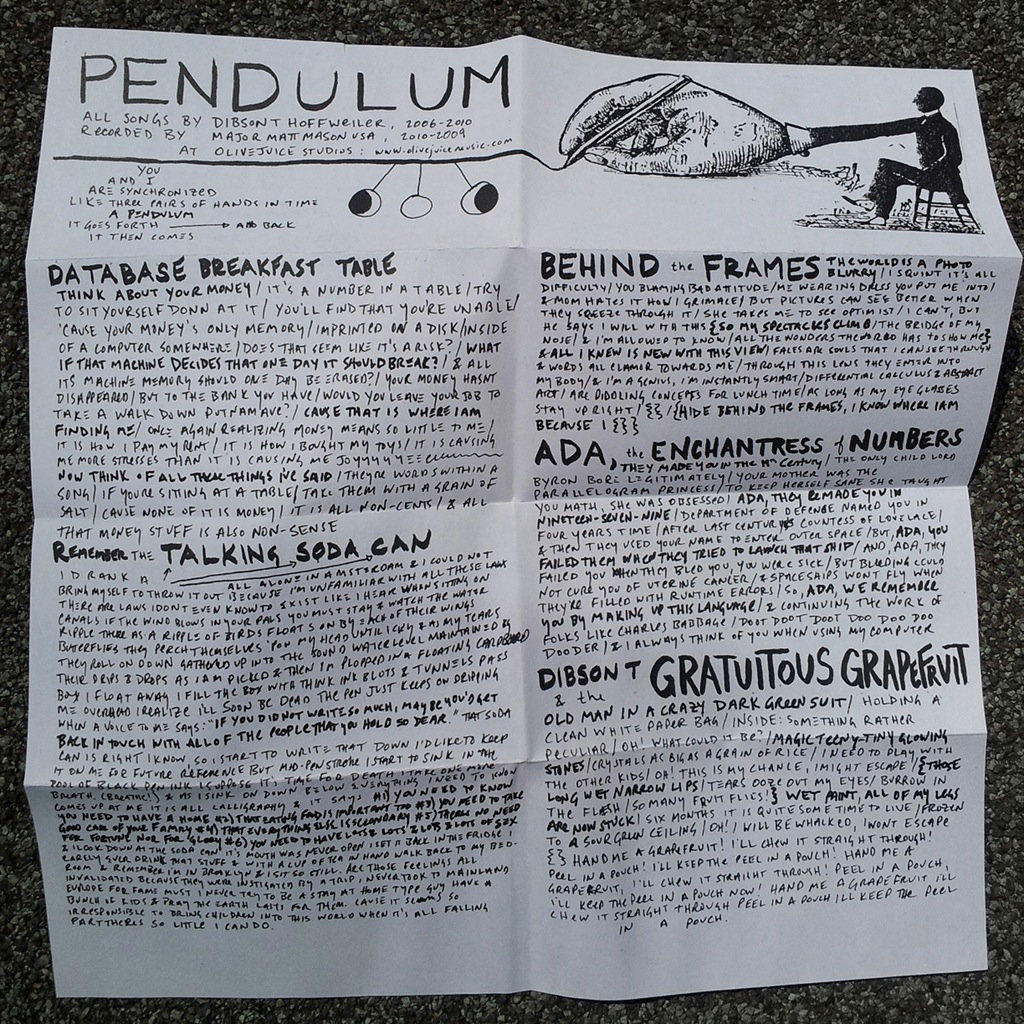 PENDULUM
ALL SONGS BY DIBSON T HOFFWEILER, 2006-2010
RECORDED BY MAJOR MATT MASON USA, 2010-2009
AT OLIVEJUICE STUDIOS: www.olivejuicemusic.com
YOU
AND I
ARE SYNCHRONIZED
LIKE THREE PAIRS OF HANDS IN TIME
A PENDULUM
IT GOES FORTH AND BACK
IT THEN COMES
DATABASE BREAKFAST TABLE
THINK ABOUT YOUR MONEY/ IT'S A NUMBER IN A TABLE/ TRY
TO SIT YOURSELF DOWN AT IT/ YOU'LL FIND THAT YOU'RE UNABLE/
'CAUSE YOUR MONEY'S ONLY MEMORY/ IMPRINTED ON A DISK/ INSIDE
OF A COMPUTER SOMEWHERE/ DOES THAT SEEM LIKE IT'S A RISK?/ WHAT
IF THAT MACHINE DECIDES THAT ONE DAY IT SHOULD BREAK?/ & ALL
ITS MACHINE MEMORY SHOULD ONE DAY BE ERASED?/ YOUR MONEY HASNT
DISAPPEARED/ BUT TO THE BANK YOU HAVE/ WOULD YOU LEAVE YOUR JOB TO
TAKE A WALK DOWN PUTNAM AVE?/ CAUSE THAT IS WHERE I AM
FINDING ME/ ONCE AGAIN REALIZING MONEY MEANS SO LITTLE TO ME/
IT IS HOW I PAY MY RENT/ IT IS HOW I BOUGHT MY TOYS/ IT IS CAUSING
ME MORE STRESSES THAN IT IS CAUSING ME JOYYYYY
NOW THINK OF ALL THESE THINGS I'VE SAID/ THEY'RE WORDS WITHIN A
SONG/ IF YOU'RE SITTING AT A TABLE/ TAKE THEM WITH A GRAIN OF
SALT/ CAUSE NONE OF IT IS MONEY/ IT IS ALL NON-CENTS/ & ALL
THAT MONEY STUFF IS ALSO NON-SENSE
REMEMBER THE TALKING SODA CAN
I DRANK A ALL ALONE IN AMSTERDAM & I COULD NOT
BRING MYSELF TO THROW IT OUT BECAUSE I'M UNFAMILIAR WITH ALL THESE LAWS
THERE ARE LAWS I DONT EVEN KNOW TO EXIST LIKE I HEAR WHEN SITTING ON
CANALS IF THE WIND BLOWS IN YOUR PALS YOU MUST STAY & WATCH THE WATER
RIPPLE THERE AS A RIPPLE OF BIRDS FLOATS ON BY EACH OF THEIR WINGS
BUTTERFLIES THEY PERCH THEMSELVES 'PON MY HEAD UNTIL I CRY & AS MY TEARS
THEY ROLL ON DOWN GATHERED UP INTO THE SOUND WATER LEVEL MAINTAINED BY
THEIR DRIPS & DROPS AS I AM PICKED & THEN I'M PLOPPED IN A FLOATING CARDBOARD
BOX I FLOAT AWAY I FILL THE BOX WITH THINK INK BLOTS & TUNNELS PASS
ME OVERHEAD I REALIZE I'LL SOON BE DEAD THE PEN JUST KEEPS ON DRIPPING
WHEN A VOICE TO ME SAYS: "IF YOU DID NOT WRITE SO MUCH, MAYBE YOU'D GET
BACK IN TOUCH WITH ALL OF THE PEOPLE THAT YOU HOLD SO DEAR." THAT SODA
CAN IS RIGHT I KNOW, SO I START TO WRITE THAT DOWN I'D LIKE TO KEEP
IT ON ME FOR FUTURE REFERENCE BUT MID-PEN STROKE I START TO SINK IN THE
POOL OF BLACK PEN INK I SUPPOSE IT'S TIME FOR DEATH I TAKE ONE MORE
BREATH, (BREATHE!) & AS I SINK ON DOWN BELOW EVERYTHING I NEED TO KNOW
COMES UP AT ME IT IS ALL CALLIGRAPHY & IT SAYS #1) YOU NEED TO KNOW
YOU NEED TO HAVE A HOME #2) THAT EATING FOOD IS IMPORTANT TOO #3) YOU NEED TO TAKE
GOOD CARE OF YOUR FAMILY #4) THAT EVERYTHING ELSE IS SECONDARY #5) THERE'S NO NEED
FOR FORTUNE NOR FOR GLORY #6) YOU NEED TO HAVE LOTS & LOTS & LOTS & LOTS OF SEX
& I LOOK DOWN AT THE SODA CAN IT'S MOUTH WAS NEVER OPEN I SET IT BACK IN THE FRIDGE I
RARELY EVER DRINK THAT STUFF & WITH A CUP OF TEA IN HAND WALK BACK TO MY BED-
ROOM & REMEMBER I'M IN BROOKLYN & I SIT SO STILL. ARE THOSE FEELINGS ALL
INVALIDATED BECAUSE THEY WERE INSTIGATED BY A TRIP I NEVER TOOK TO MAINLAND
EUROPE FOR FAME MUST I NEVER TRY TO BE A STAY AT HOME TYPE GUY HAVE A
BUNCH OF KIDS & PRAY THE EARTH LASTS FOR THEM. CAUSE IT SEEMS SO
IRRESPONSIBLE TO BRING CHILDREN INTO THIS WORLD WHEN IT'S ALL FALLING
PART THERES SO LITTLE I CAN DO.
BEHIND the FRAMES THE WORLD IS A PHOTO
BLURRY/ I SQUINT IT'S ALL
DIFFICULTY/ YOU BLAMING BAD ATTITUDE/ ME WEARING DRESS YOU PUT ME INTO/
& MOM HATES IT HOW I GRIMACE/ BUT PICTURES CAN SEE BETTER WHEN
THEY SQUEEZE THROUGH IT/ SHE TAKES ME TO SEE OPTIMIST/ I CAN'T, BUT
HE SAYS I WILL WITH THIS {SO MY SPECTACLES CLIMB/ THE BRIDGE OF MY
NOSE/ & I'M ALLOWED TO KNOW/ ALL THE WONDERS THE WORLD HAS TO SHOW ME}
& ALL I KNEW IS NEW WITH THIS VIEW/ FACES ARE SOULS THAT I CAN SEE THROUGH
& WORDS ALL CLAMOR TOWARDS ME/ THROUGH THIS LENS THEY ENTER INTO
MY BODY/ & I'M A GENIUS, I'M INSTANTLY SMART/ DIFFERENTIAL CALCULUS & ABSTRACT
ART/ ARE PIDDLING CONCEPTS FOR LUNCH TIME/ AS LONG AS MY EYE GLASSES
STAY UPRIGHT/ {}/ {HIDE BEHIND THE FRAMES, I KNOW WHERE I AM
BECAUSE I {}}
ADA, the ENCHANTRESS of NUMBERS
THEY MADE YOU IN THE 19th CENTURY/ THE ONLY CHILD LORD
BYRON BORE LEGITIMATELY/ YOUR MOTHER WAS THE
PARALLELOGRAM PRINCESS/ TO KEEP HERSELF SANE SHE TAUGHT
YOU MATH, SHE WAS OBSESSED/ ADA, THEY REMADE YOU IN
NINETEEN-SEVEN-NINE/ DEPARTMENT OF DEFENSE NAMED YOU IN
FOUR YEARS TIME/ AFTER LAST CENTURY'S COUNTESS OF LOVELACE/
& THEN THEY USED YOUR NAME TO ENTER OUTER SPACE/ BUT, ADA, YOU
FAILED THEM WHEN THEY TRIED TO LAUNCH THAT SHIP/ AND, ADA, THEY
FAILED YOU WHEN THEY BLED YOU, YOU WERE SICK/ BUT BLEEDING COULD
NOT CURE YOU OF UTERINE CANCER/ & SPACESHIPS WONT FLY WHEN
THEY'RE FILLED WITH RUNTIME ERRORS/ SO, ADA, WE REMEMBER
YOU BY MAKING UP THIS LANGUAGE/ & CONTINUING THE WORK OF
FOLKS LIKE CHARLES BABBAGE/ DOOT DOOT DOOT DOO DOO DOO
DOODER/ & I ALWAYS THINK OF YOU WHEN USING MY COMPUTER
DIBSON T GRATUITOUS GRAPEFRUIT
& the
OLD MAN IN A CRAZY DARK GREEN SUIT/ HOLDING A
CLEAN WHITE PAPER BAG/ INSIDE: SOMETHING RATHER
PECULIAR/ OH! WHAT COULD IT BE?/ MAGIC TEENY-TINY GLOWING
STONES/ CRYSTALS AS BIG AS A GRAIN OF RICE/ I NEED TO PLAY WITH
THE OTHER KIDS/ OH! THIS IS MY CHANCE, I MIGHT ESCAPE/ {THOSE
LONG WET NARROW LIPS/ TEARS OOZE OUT MY EYES/ BURROW IN
THE FLESH/ SO MANY FRUIT FLIES!} WET PAINT, ALL OF MY LEGS
ARE NOW STUCK/ SIX MONTHS IT IS QUITE SOME TIME TO LIVE/ FROZEN
TO A SOUR GREEN CEILING/ OH! I WILL BE WHACKED, I WONT ESCAPE
{} HAND ME A GRAPEFRUIT! I'LL CHEW IT STRAIGHT THROUGH!
PEEL IN A POUCH! I'LL KEEP THE PEEL IN A POUCH! HAND ME A
GRAPEFRUIT, I'LL CHEW IT STRAIGHT THROUGH! PEEL IN A POUCH,
I'LL KEEP THE PEEL IN A POUCH NOW! HAND ME A GRAPEFRUIT I'LL
CHEW IT STRAIGHT THROUGH PEEL IN A POUCH I'LL KEEP THE PEEL
IN A POUCH.